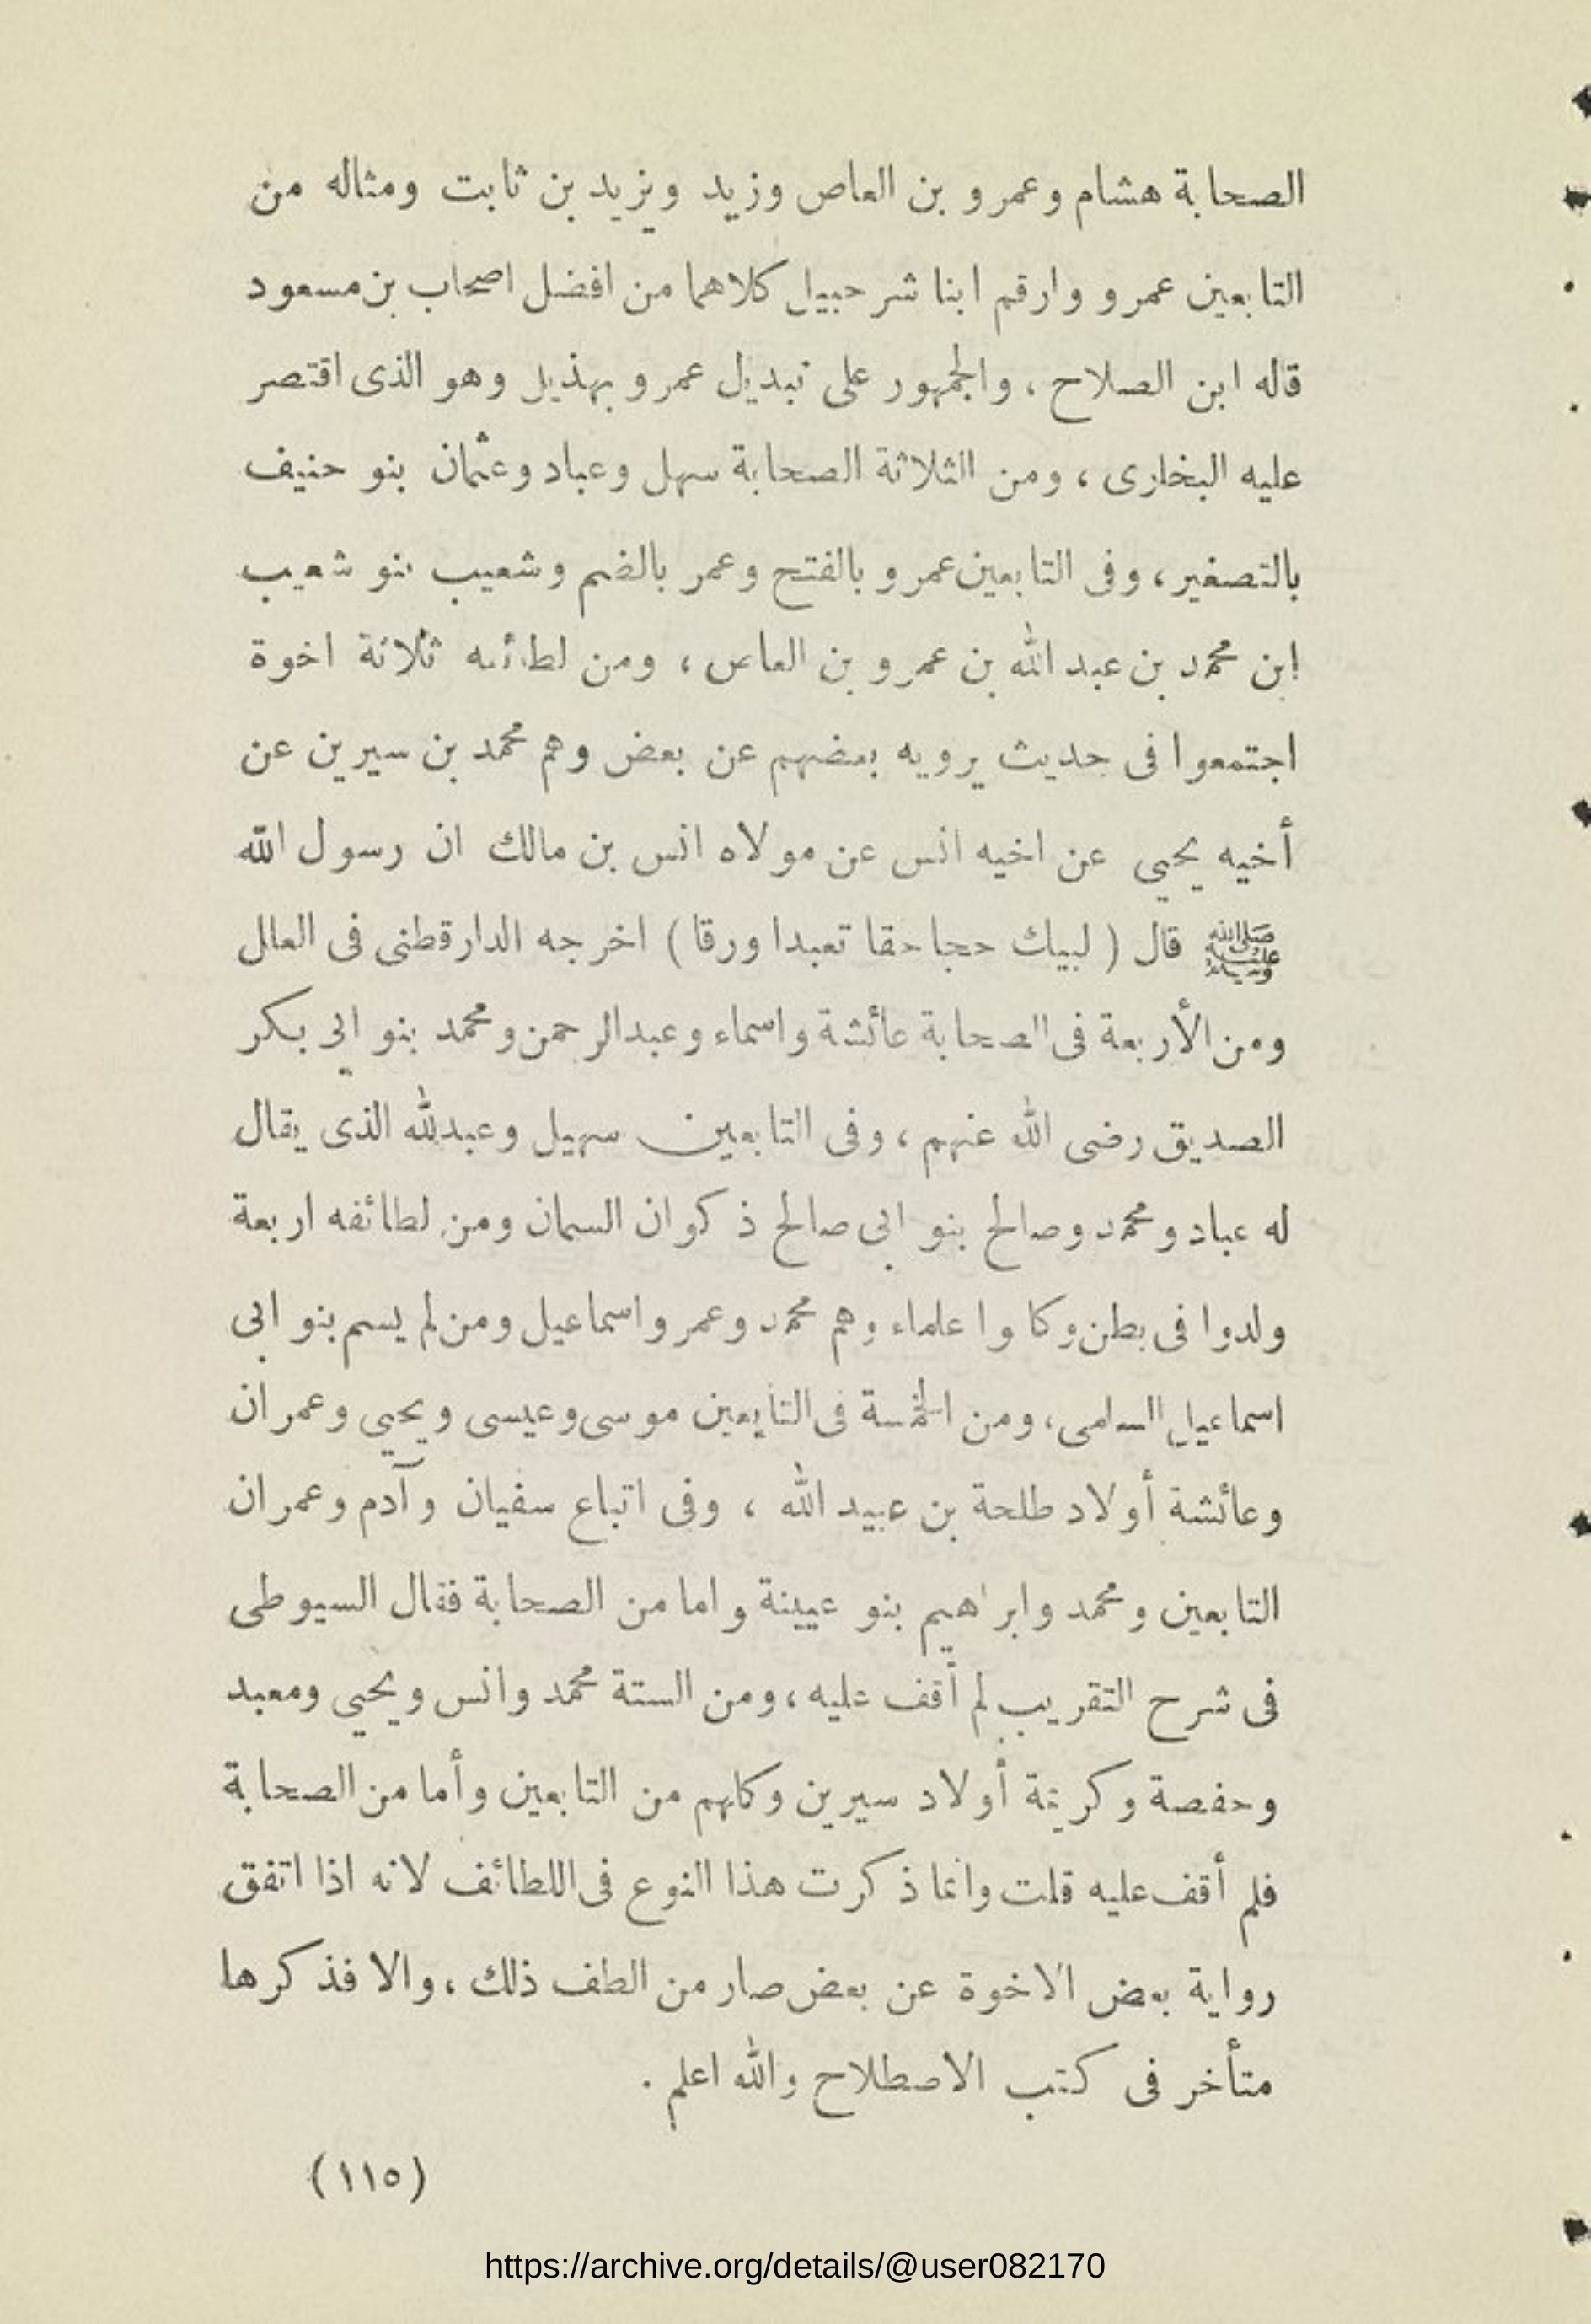 الصحابة هشام وعمرو بن العاص وزيد ويزيد بن ثابت ومثاله من
التابعين عمرو وارقم ابنا شرحبيل كلاهما من افضل اصحاب بن مسعود
قاله ابن الصلاح ، والجمهور على تبديل عمرو بهذيل وهو الذى اقتصر
عليه البخارى ، ومن الثلاثة الصحابة سهل وعباد وعثمان بنو حنيف
بالتصغير ، وفى التابعين عمرو بالفتح وعمر بالضم وشعيب بنو شعيب
ابن محمد بن عبد الله بن عمرو بن العاص ، ومن لطائفه ثلاثة اخوة
اجتمعوا فى حديث يرويه بعضهم عن بعض وهم محمد بن سيرين عن
أخيه يحيي عن اخيه انس عن مولاه انس بن مالك ان رسول الله
ﷺ قال ( لبيك حجا حقا تعبدا ورقا ) اخرجه الدارقطنى فى العلل
ومن الأربعة فى الصحابة عائشة واسماء وعبدالرحمن ومحمد بنو ابي بكر
الصديق رضى الله عنهم ، وفى التابعين سهيل وعبدلله الذى يقال
له عباد ومحمد وصالح بنو ابى صالح ذكوان السمان ومن لطائفه اربعة
ولدوا فى بطن وكا وا علماء وهم محمد وعمر واسماعيل ومن لم يسم بنو ابى
اسماعيل السلمى ، ومن الخمسة فى التابعين موسى وعيسى ويحيي وعمران
وعائشة أولاد طلحة بن عبيد الله ، وفى اتباع سفيان وآدم وعمران
التابعين ومحمد وابراهيم بنو عيينة واما من الصحابة فقال السيوطى
فى شرح التقريب لم أقف عليه ، ومن الستة محمد وانس ويحيي ومعبد
وحفصة وكريمة أولاد سيرين وكلهم من التابعين وأما من الصحابة
فلم أقف عليه قلت وانما ذكرت هذا النوع فى اللطائف لانه اذا اتفق
رواية بعض الاخوة عن بعض صار من الطف ذلك ، والا فذكرها
متأخر فى كتب الاصطلاح والله اعلم .
(١١٥)
https://archive.org/details/@user082170